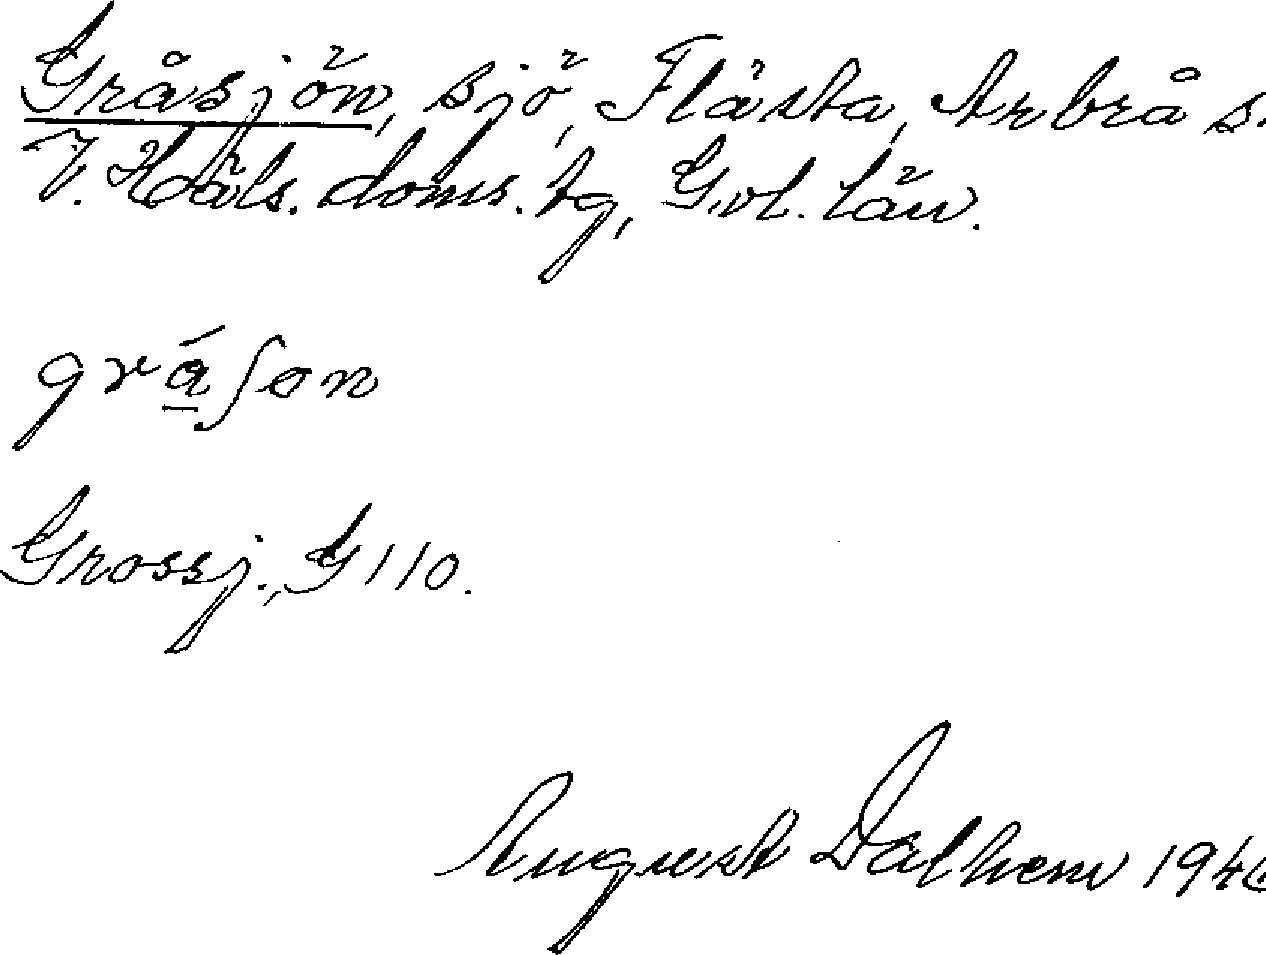 Gråsjön, sjö, Flästa, Arbrå s.
V. Häls. doms. tg, Gvl. län.
grá̱ʃon
Grossj., G 110.
August Dalhem 1946